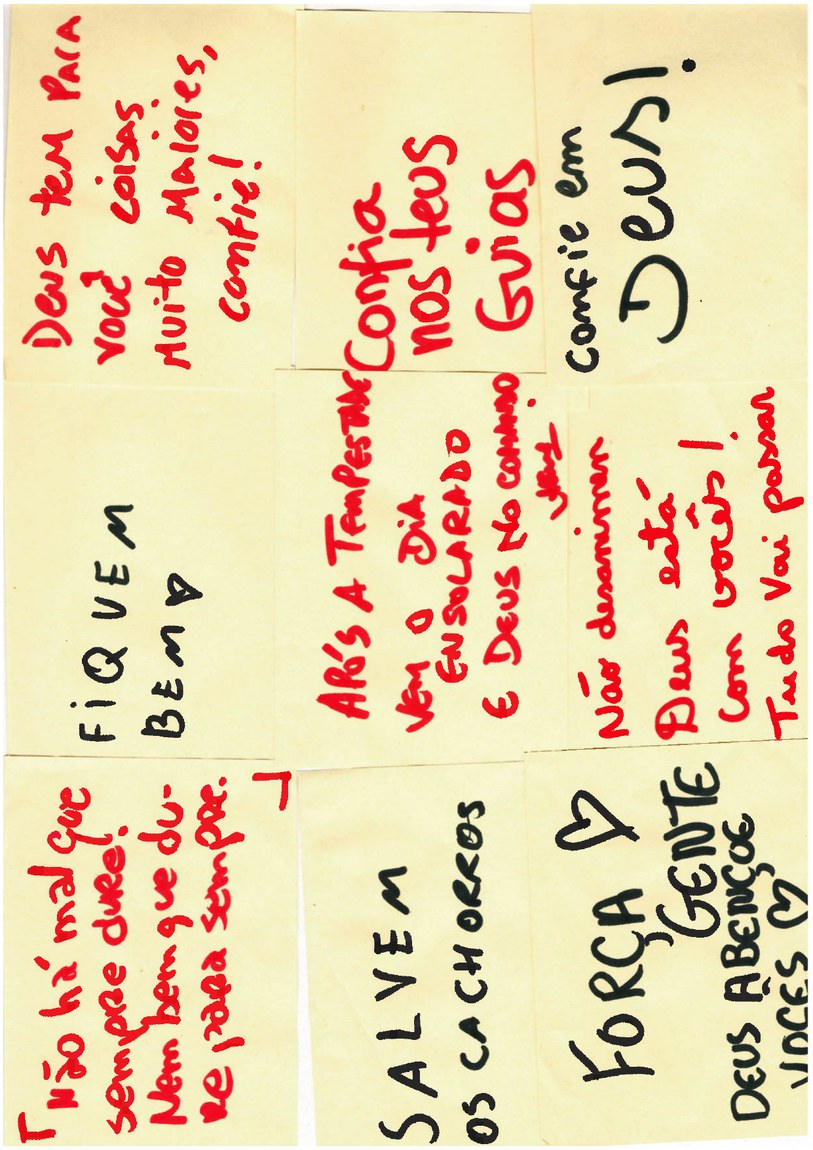 Não há mal que
sempre dure!
Nem bem que du-
re para sempre.
FIQUEM
BEM ♡
DEUS tem PARA
você coisas
Muito Maiores,
confie!
SALVEM
OS CACHORROS
APÓS A TEMPESTADE
VEM O DIA
ENSOLARADO
E DEUS NO COMANDO
Confia
nos teus
Guias
FORÇA ♡
GENTE
DEUS ABENÇOE
VOCES ♡
Não desanimem
Deus está
Com vocês!
Tudo vai passar
confie em
Deus!